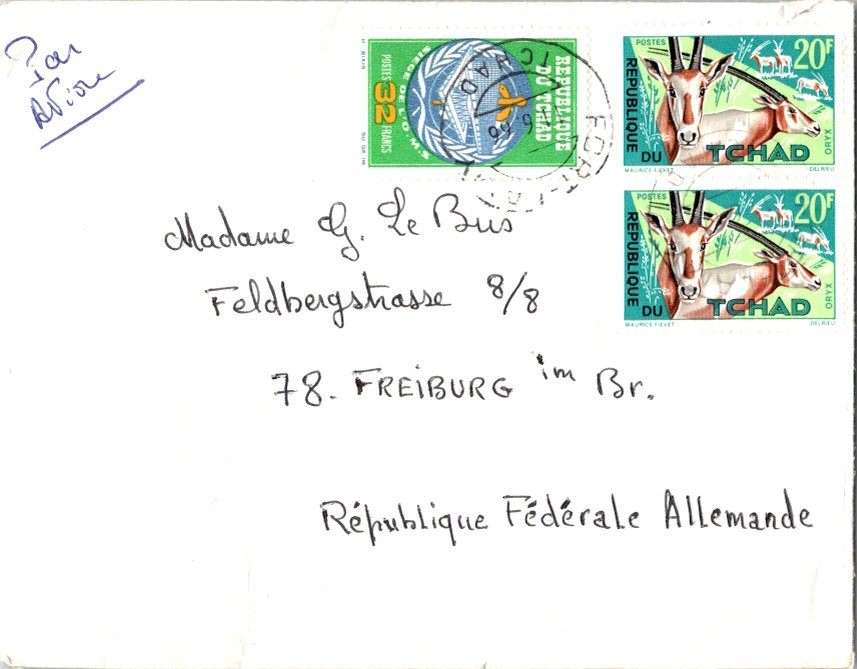 Par
Avion
REPUBLIQUE
DU TCHAD
SIEGE DE L'O.
POSTES 32 FRANCS
FORT-LAMY
TCHAD
6 66
POSTES
20F
REPUBLIQUE
DU TCHAD
ORYX
MAURICE FIEVET
DELRIEU
POSTES
20F
REPUBLIQUE
DU TCHAD
ORYX
MAURICE FIEVET
DELRIEU
Madame G. Le Bus
Feldbergstrasse 8/8
78. FREIBURG im Br.
République Fédérale Allemande